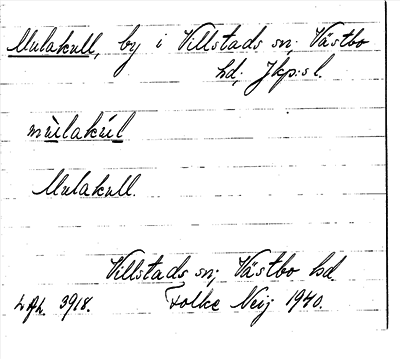 Mulakull, by i Villstads sn; Västbo
hd; Jkp:sl.
mùlakúl
Mulakull.
Villstads sn; Västbo hd.
LAL. 3918. Folke Neij 1940.